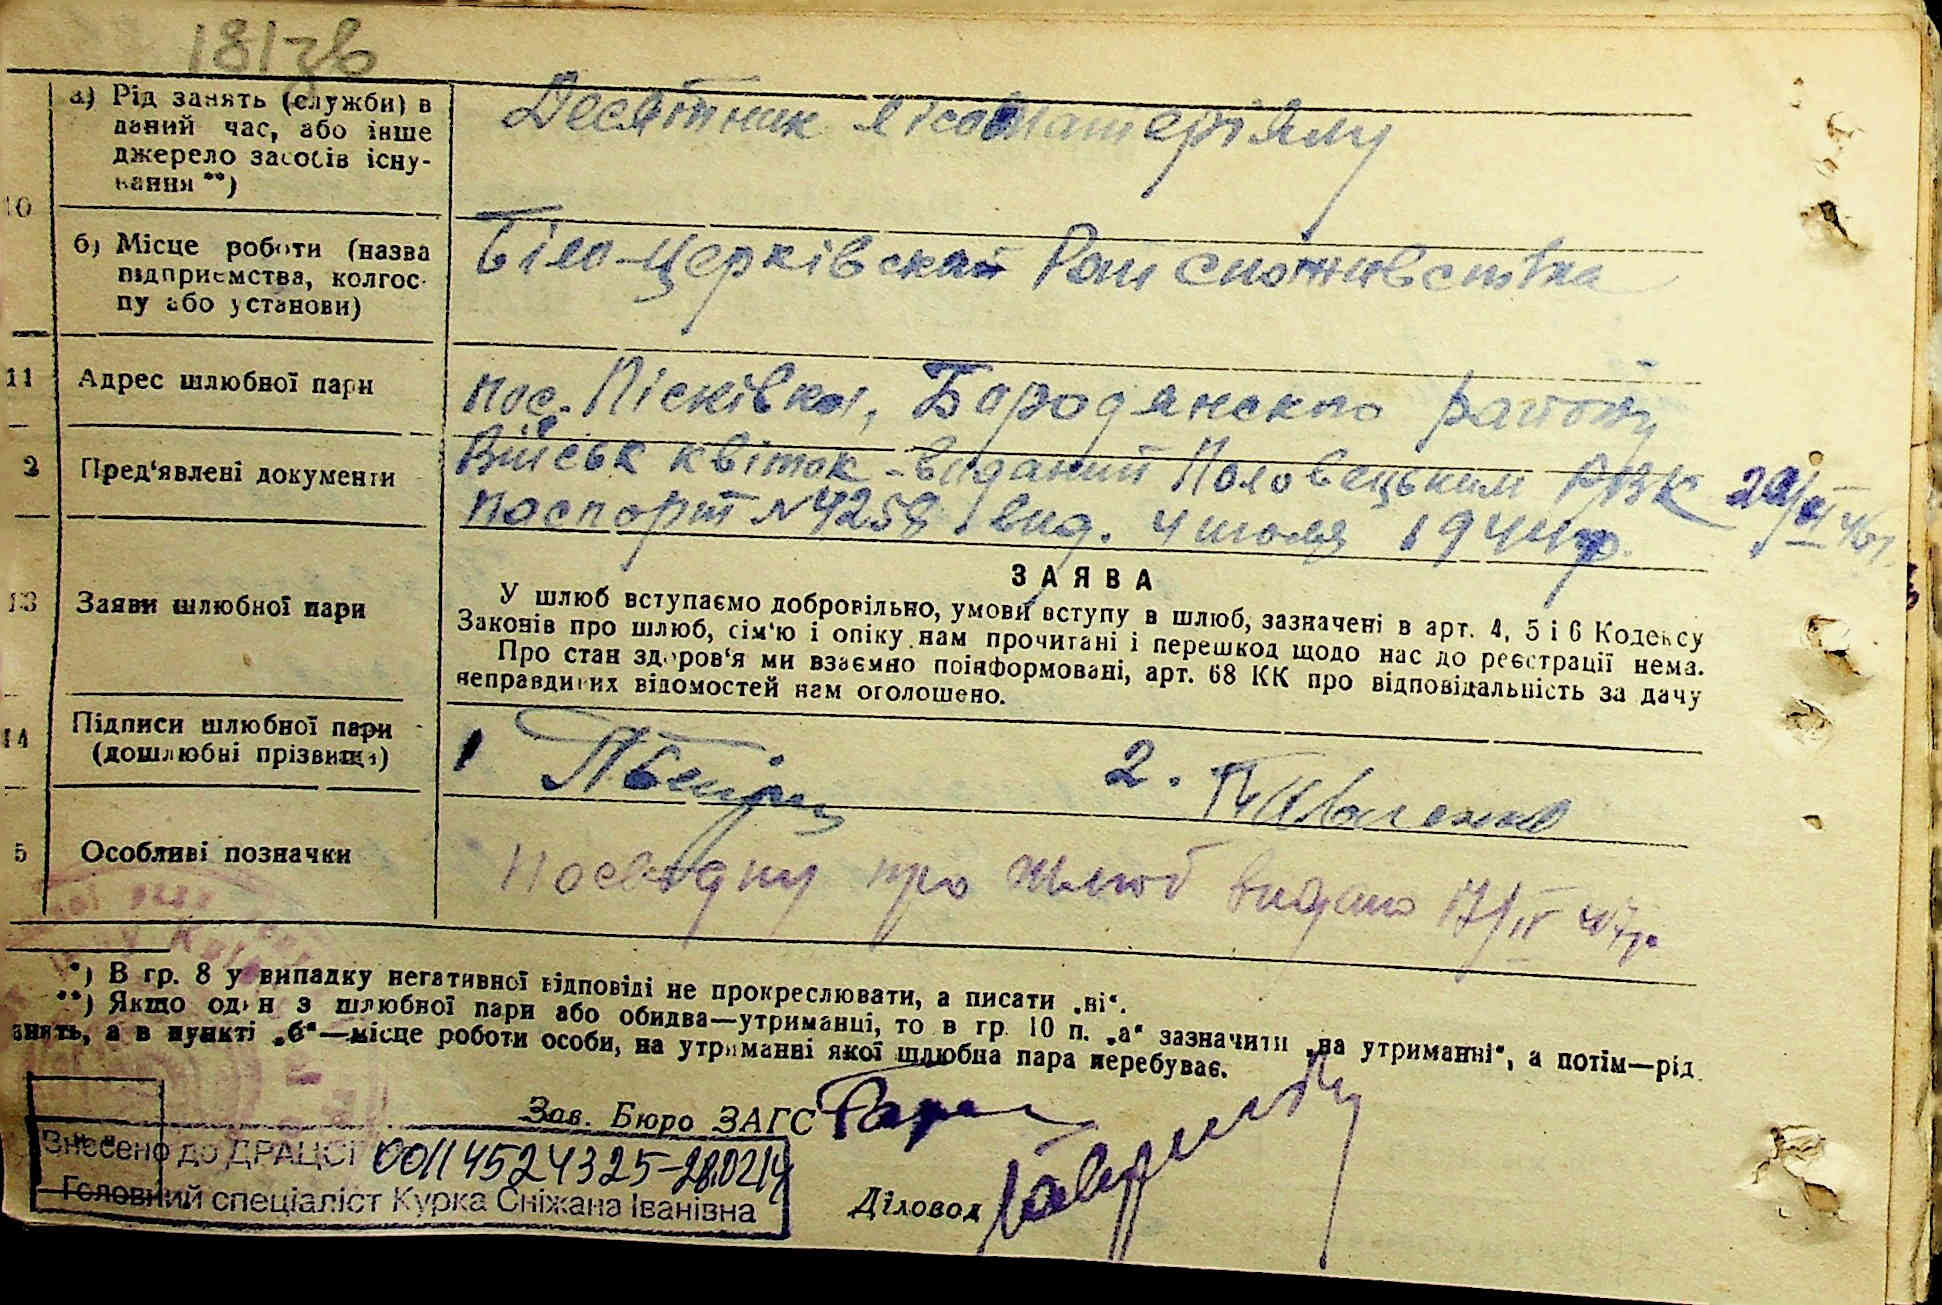 181зв
а) Рід занять (служби) в
даний час, або інше
джерело засобів існу-
вання **)
Десятник лісоматеріялу
10
б) Місце роботи (назва
підприємства, колгос-
пу або установи)
Біло-Церківская Райспоживспілка
11 Адрес шлюбної пари
пос. Пісківка, Бородянского району
2 Пред'явлені документи
Військ квіток - виданий Половецьким РВК 29/ІІ 46г.
Паспорт № 4259 вид. 4 июля 1944р.
13 Заяви шлюбної пари
ЗАЯВА
У шлюб вступаємо добровільно, умови вступу в шлюб, зазначені в арт. 4, 5 і 6 Кодексу
Законів про шлюб, сім'ю і опіку нам прочитані і перешкод щодо нас до реєстрації нема.
Про стан здоров'я ми взаємно поінформовані, арт. 68 КК про відповідальність за дачу
неправдивих відомостей нам оголошено.
14 Підписи шлюбної пари
(дошлюбні прізвища)
1 2. Іваченко
5 Особливі позначки
Посвідку про шлюб видано 17/ІV 47р.
*) В гр. 8 у випадку негативної відповіді не прокреслювати, а писати „ні“.
**) Якщо один з шлюбної пари або обидва—утриманці, то в гр. 10 п. „а“ зазначити „на утриманні“, а потім—рід
занять, а в пункті „б“—місце роботи особи, на утриманні якої шлюбна пара перебуває.
Зав. Бюро ЗАГС
Знесено до ДРАЦСГ 00114524325-28.02.14
Головний спеціаліст Курка Сніжана Іванівна
Діловод